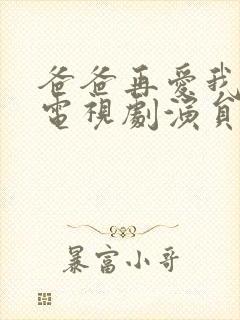 爸爸再愛我
電視劇演員
暴富小哥